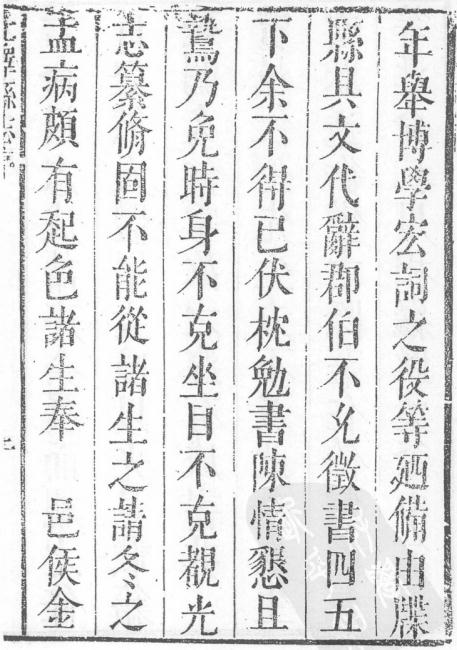 年舉博學宏詞之役等廼備由諜
縣具文代辭郡伯不允徵書四五
下余不得已伏枕勉書陳情懇且
鷙乃免時身不克坐目不克覩光
志纂脩固不能從諸生之請冬之
孟病頗有起色諸生奉 邑侯金